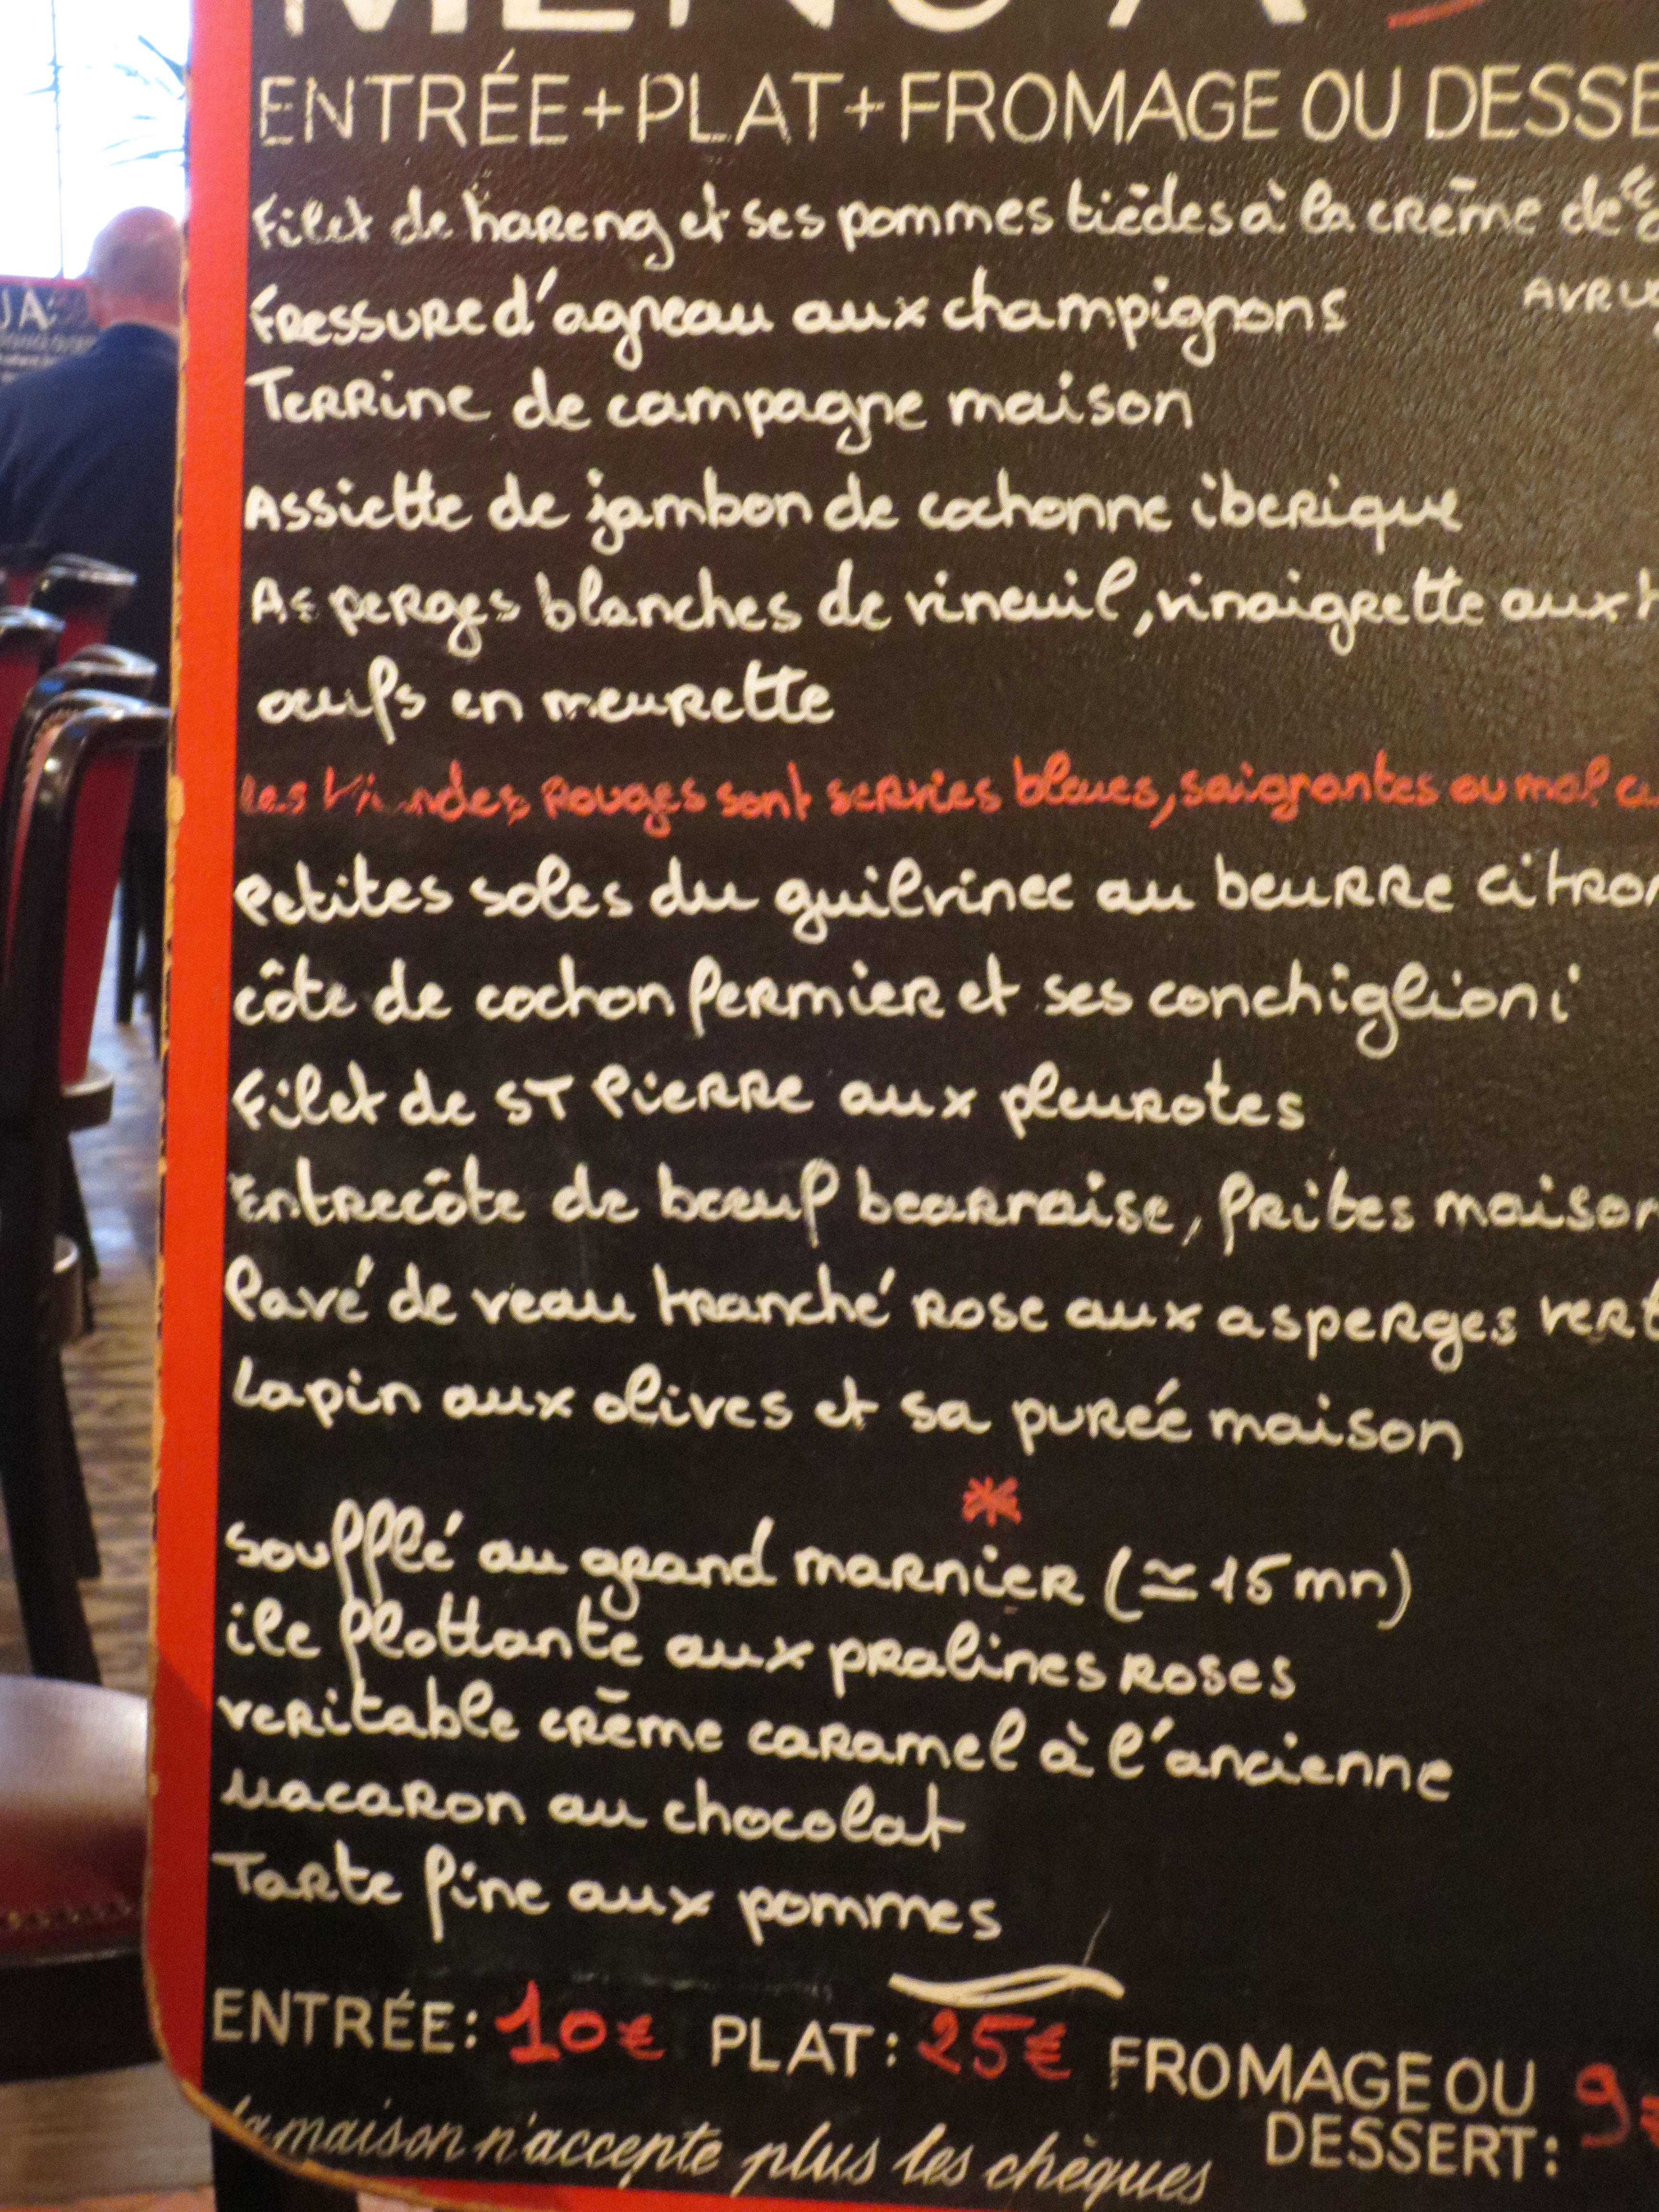 MENU A
ENTRÉE+PLAT+FROMAGE OU DESSE
Filet de hareng et ses pommes tièdes à la crème de
AVRU
Fressure d'agneau aux champignons
Terrine de campagne maison
Assiette de jambon de cochonne iberique
Asperges blanches de vineuil, vinaigrette aux
œufs en meurette
les viandes rouges sont servies bleues, saignantes ou mal cu
Petites soles du guilvinec au beurre citron
côte de cochon fermier et ses conchiglioni
Filet de ST Pierre aux pleurotes
Entrecôte de bœuf bearnaise, frites maison
Pavé de veau tranché rose aux asperges vert
Lapin aux olives et sa purée maison
*
Soufflé au grand marnier (≃15 mn)
ile flottante aux pralines roses
veritable crème caramel à l'ancienne
Macaron au chocolat
Tarte fine aux pommes
ENTRÉE: 10€ PLAT: 25€ FROMAGE OU DESSERT: 9€
la maison n'accepte plus les chèques